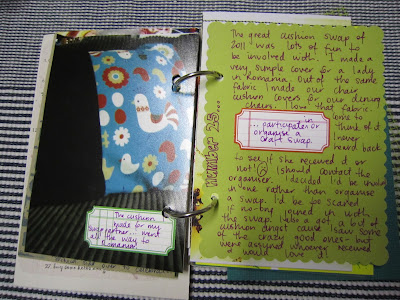 The cushion
I made for my
swap partner... went
all the way to
Romania!
number 25...
The great cushion swap of
2011 was lots of fun to
be involved with. I made a
very simple cover for a lady
in Romania. Out of the same
fabric I made our chair
cushion covers for our dining
chairs. I love that fabric.
... participate in or
organise a
craft swap.
time to
think of it
never
heard back
to see if she received it or
not! I should contact the
organiser. I decided I'd be
in one rather than organise
a swap. I'd be too scared
no-one joined in with
the swap. I also got a bit of
cushion angst cause I saw some
of the crazy good ones - but
were assured whoever received
it would love it!